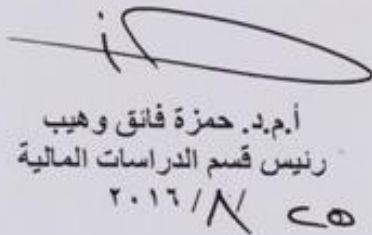 أ.م.د. حمزة فائق وهيب
رئيس قسم الدراسات المالية
٢٥ / ٨ / ٢٠١٦